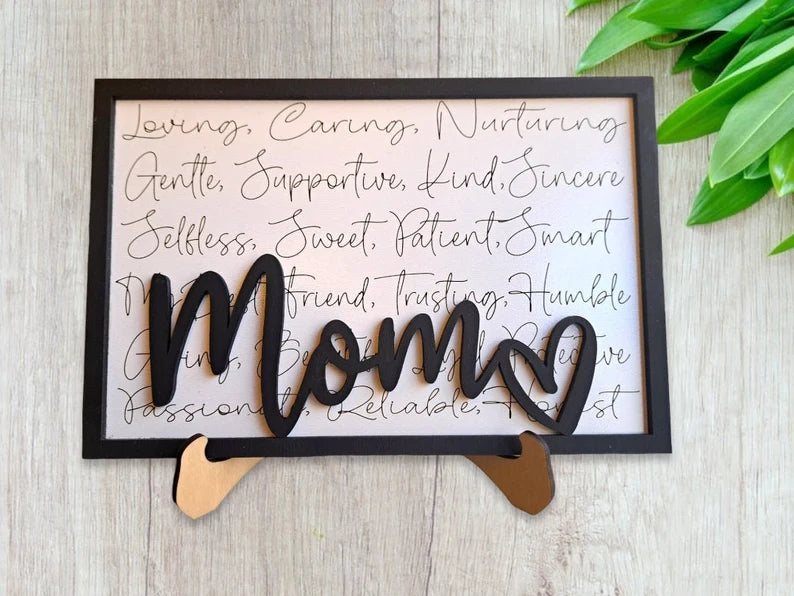 Loving, Caring, Nurturing
Gentle, Supportive, Kind, Sincere
Selfless, Sweet, Patient, Smart
My Best Friend, Trusting, Humble
Giving, Loyal, Protective
Passionate, Reliable, Honest
Mom